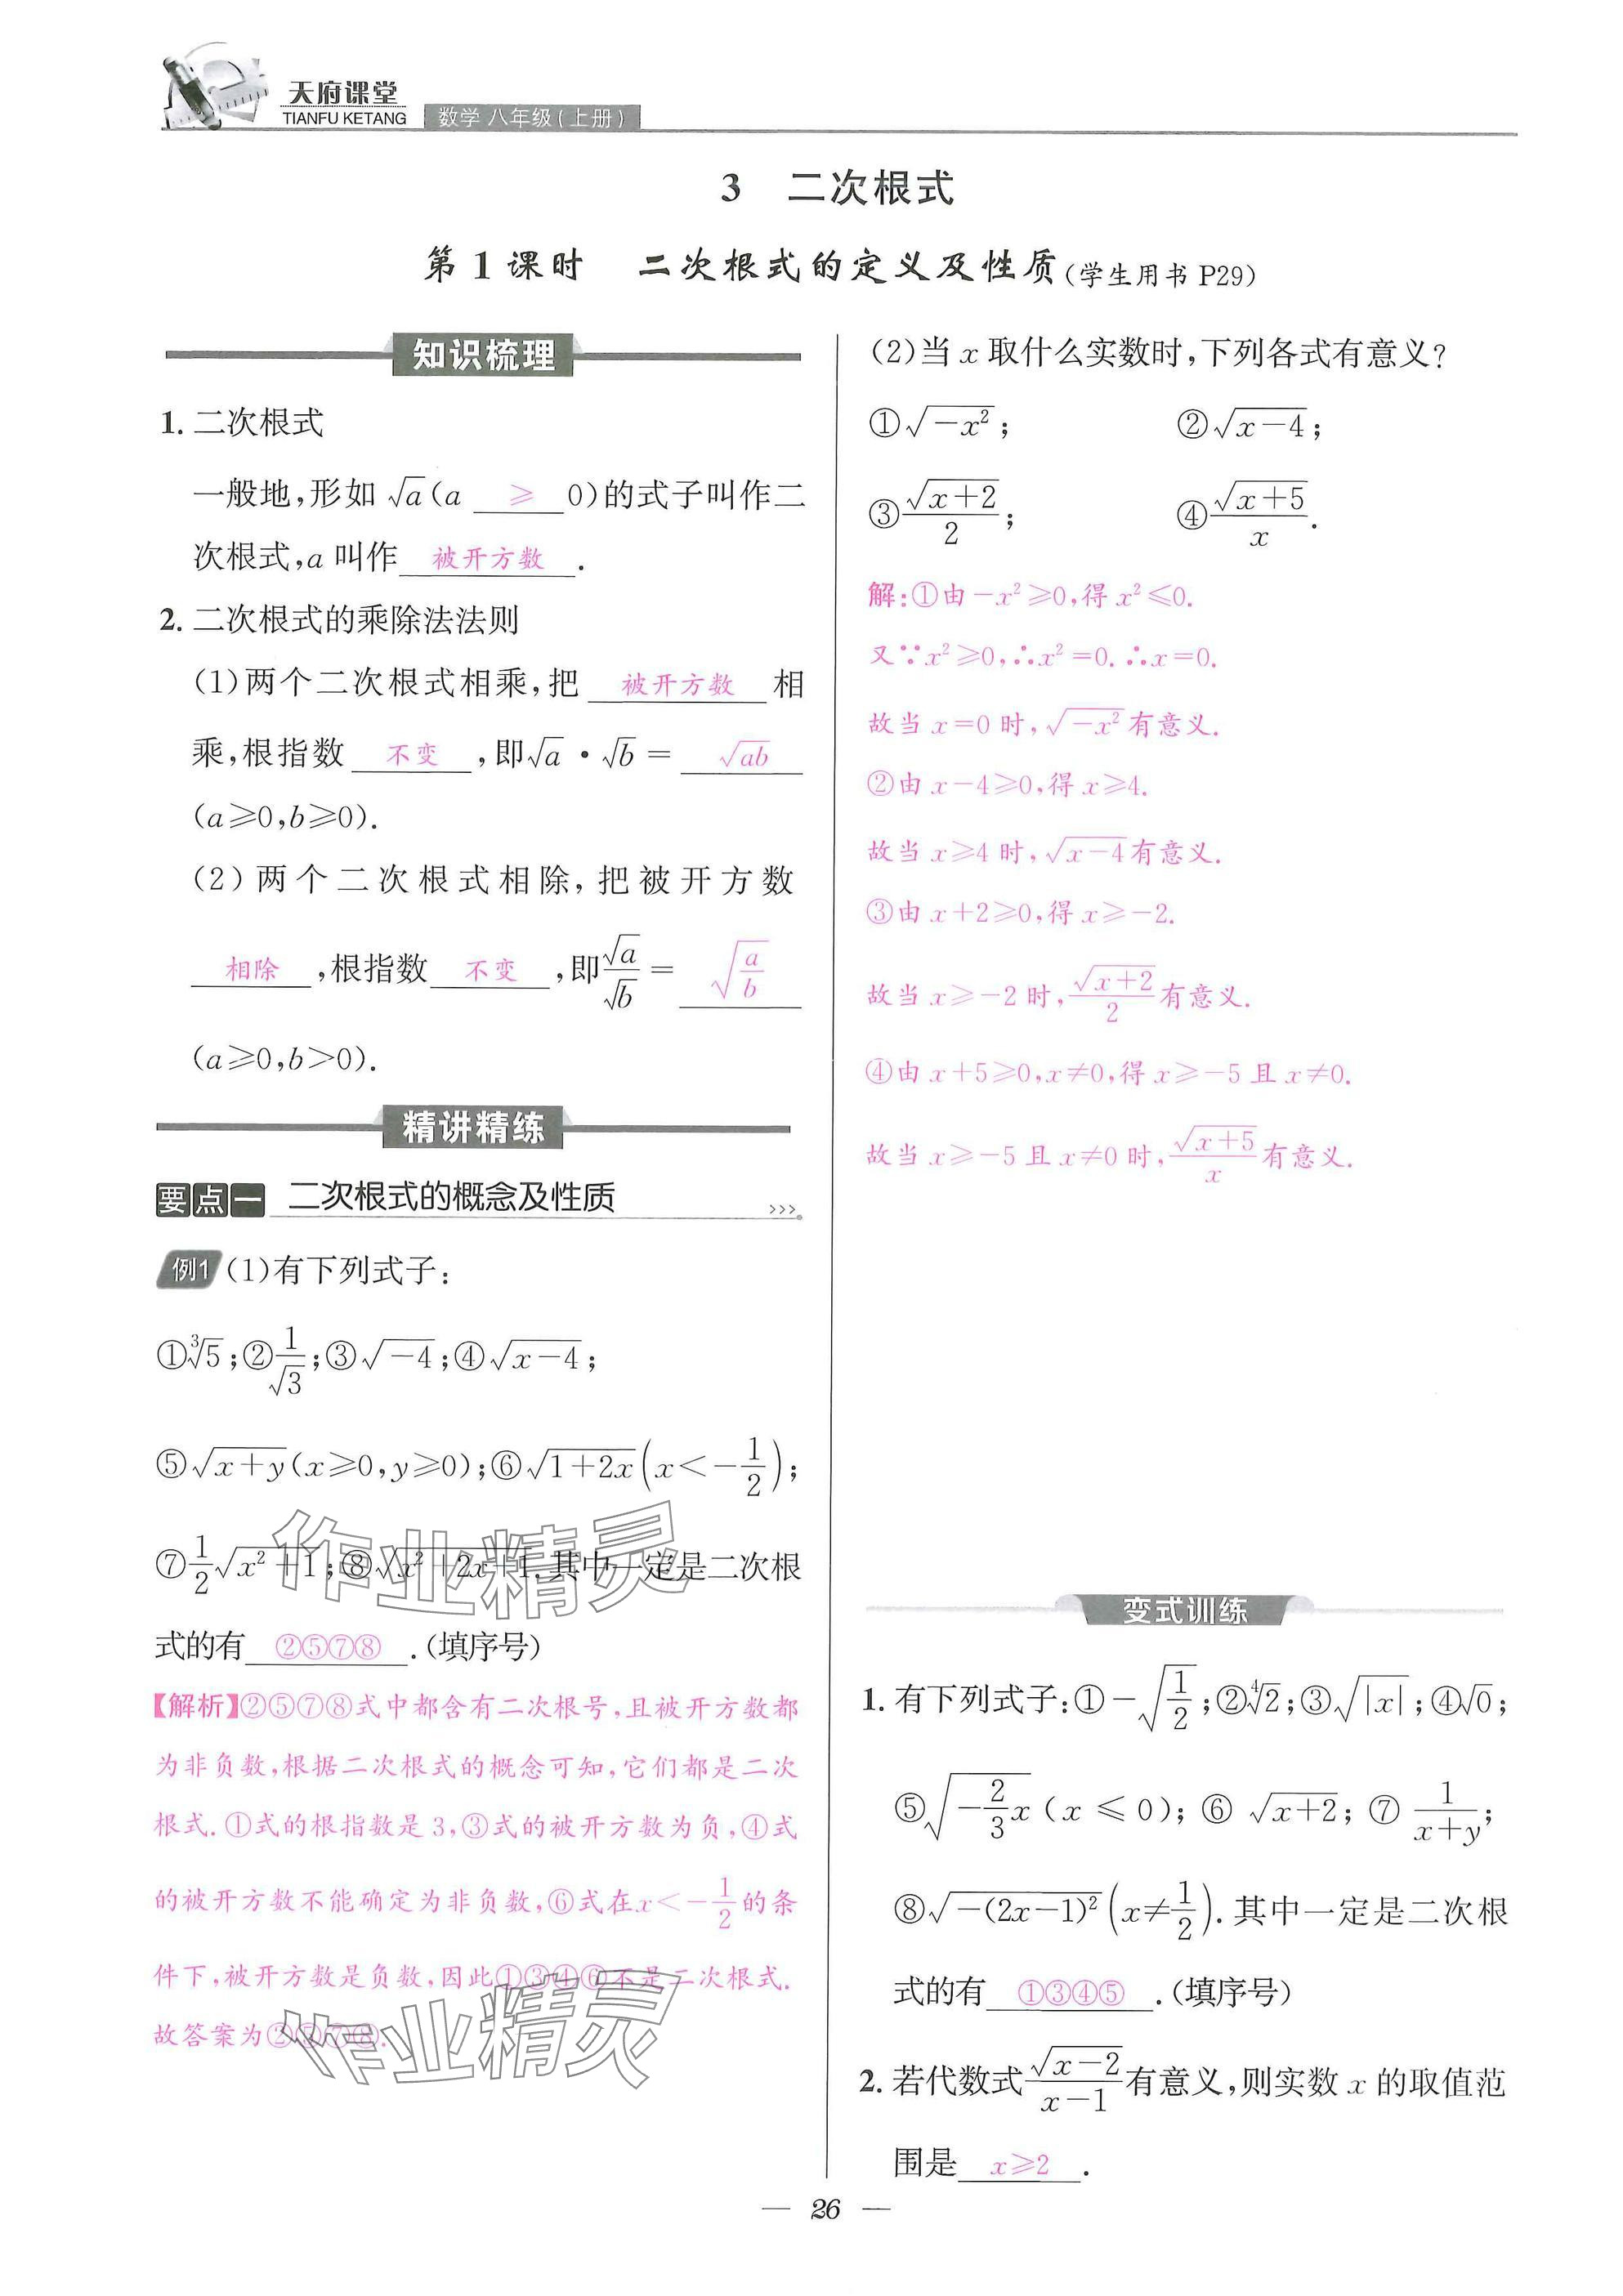 天府课堂
TIANFU KETANG 数学 八年级(上册)
3 二次根式
第1课时 二次根式的定义及性质(学生用书P29)
知识梳理
1. 二次根式
一般地,形如√a(a ≥ 0)的式子叫作二
次根式,a叫作 被开方数 .
2. 二次根式的乘除法法则
(1)两个二次根式相乘,把 被开方数 相
乘,根指数 不变 ,即√a·√b= √ab
(a≥0,b≥0).
(2)两个二次根式相除,把被开方数
相除 ,根指数 不变 ,即√a/√b= √(a/b)
(a≥0,b>0).
精讲精练
要点一 二次根式的概念及性质 >>>
例1 (1)有下列式子:
①∛5;②1/√3;③√(-4);④√(x-4);
⑤√(x+y)(x≥0,y≥0);⑥√(1+2x)(x<-1/2);
⑦1/2√(x²+1);⑧√(x²+2x+1).其中一定是二次根
式的有 ②⑤⑦⑧ .(填序号)
【解析】②⑤⑦⑧式中都含有二次根号,且被开方数都
为非负数,根据二次根式的概念可知,它们都是二次
根式.①式的根指数是3,③式的被开方数为负,④式
的被开方数不能确定为非负数,⑥式在x<-1/2的条
件下,被开方数是负数,因此①③④⑥不是二次根式.
故答案为②⑤⑦⑧.
(2)当x取什么实数时,下列各式有意义?
①√(-x²); ②√(x-4);
③√(x+2)/2; ④√(x+5)/x.
解:①由-x²≥0,得x²≤0.
又∵x²≥0,∴x²=0.∴x=0.
故当x=0时,√(-x²)有意义.
②由x-4≥0,得x≥4.
故当x≥4时,√(x-4)有意义.
③由x+2≥0,得x≥-2.
故当x≥-2时,√(x+2)/2有意义.
④由x+5≥0,x≠0,得x≥-5且x≠0.
故当x≥-5且x≠0时,√(x+5)/x有意义.
变式训练
1. 有下列式子:①-√(1/2);②∜2;③√|x|;④√0;
⑤√(-2/3x)(x≤0);⑥√(x+2);⑦1/(x+y);
⑧√(-(2x-1)²)(x≠1/2).其中一定是二次根
式的有 ①③④⑤ .(填序号)
2. 若代数式√(x-2)/(x-1)有意义,则实数x的取值范
围是 x≥2 .
作业精灵
作业精灵
— 26 —